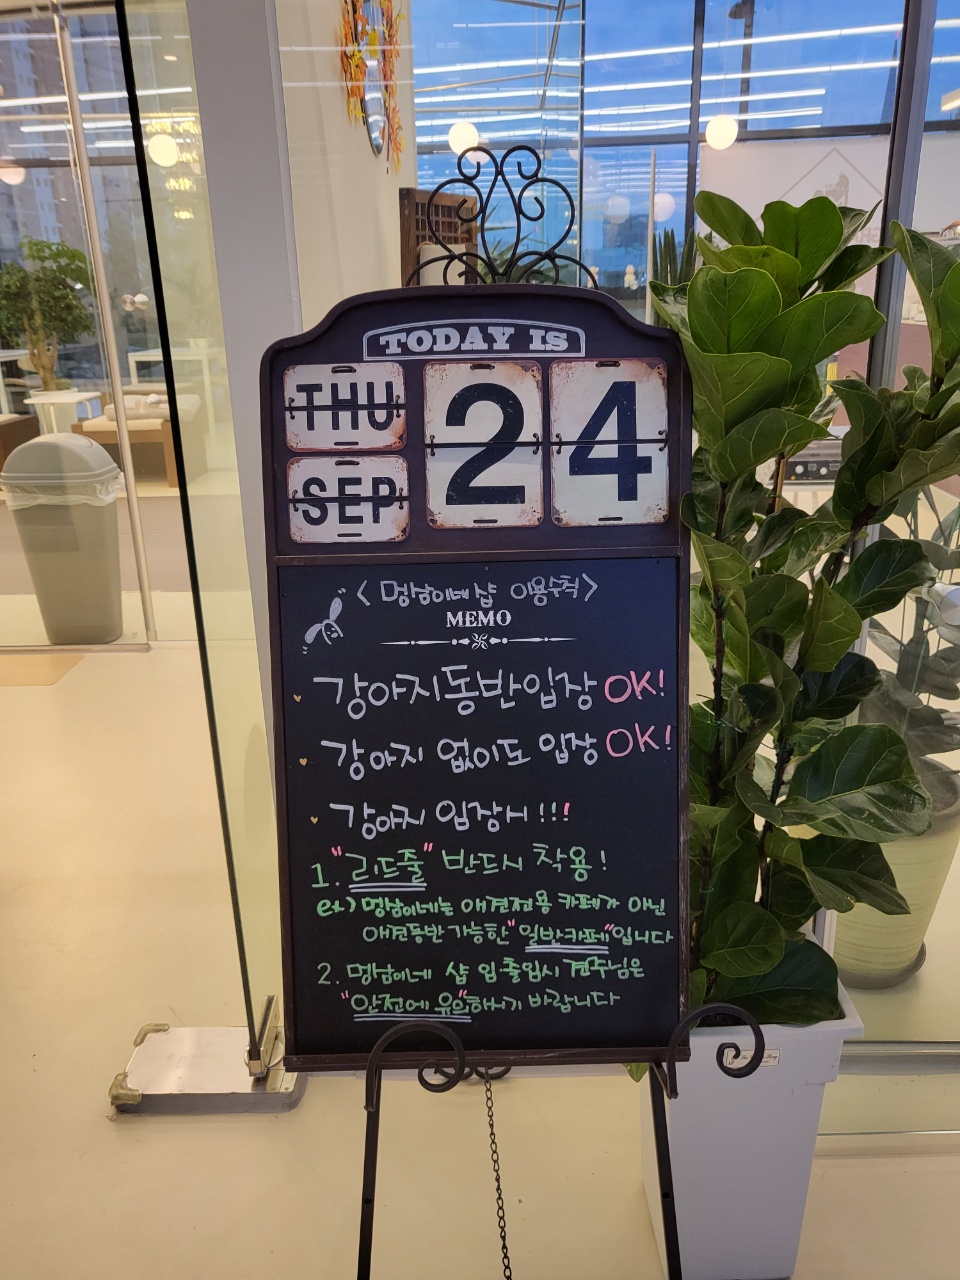 TODAY IS
THU
24
SEP
< 멍냥이네 샵 이용수칙 >
MEMO
강아지동반입장 OK!
강아지 없이도 입장 OK!
강아지 입장시 !!!
1. "리드줄" 반드시 착용!
ex) 멍냥이네는 애견전용 카페가 아닌
애견동반 가능한 "일반카페" 입니다
2. 멍냥이네 샵 입출입시 견주님은
"안전에 유의" 하시기 바랍니다